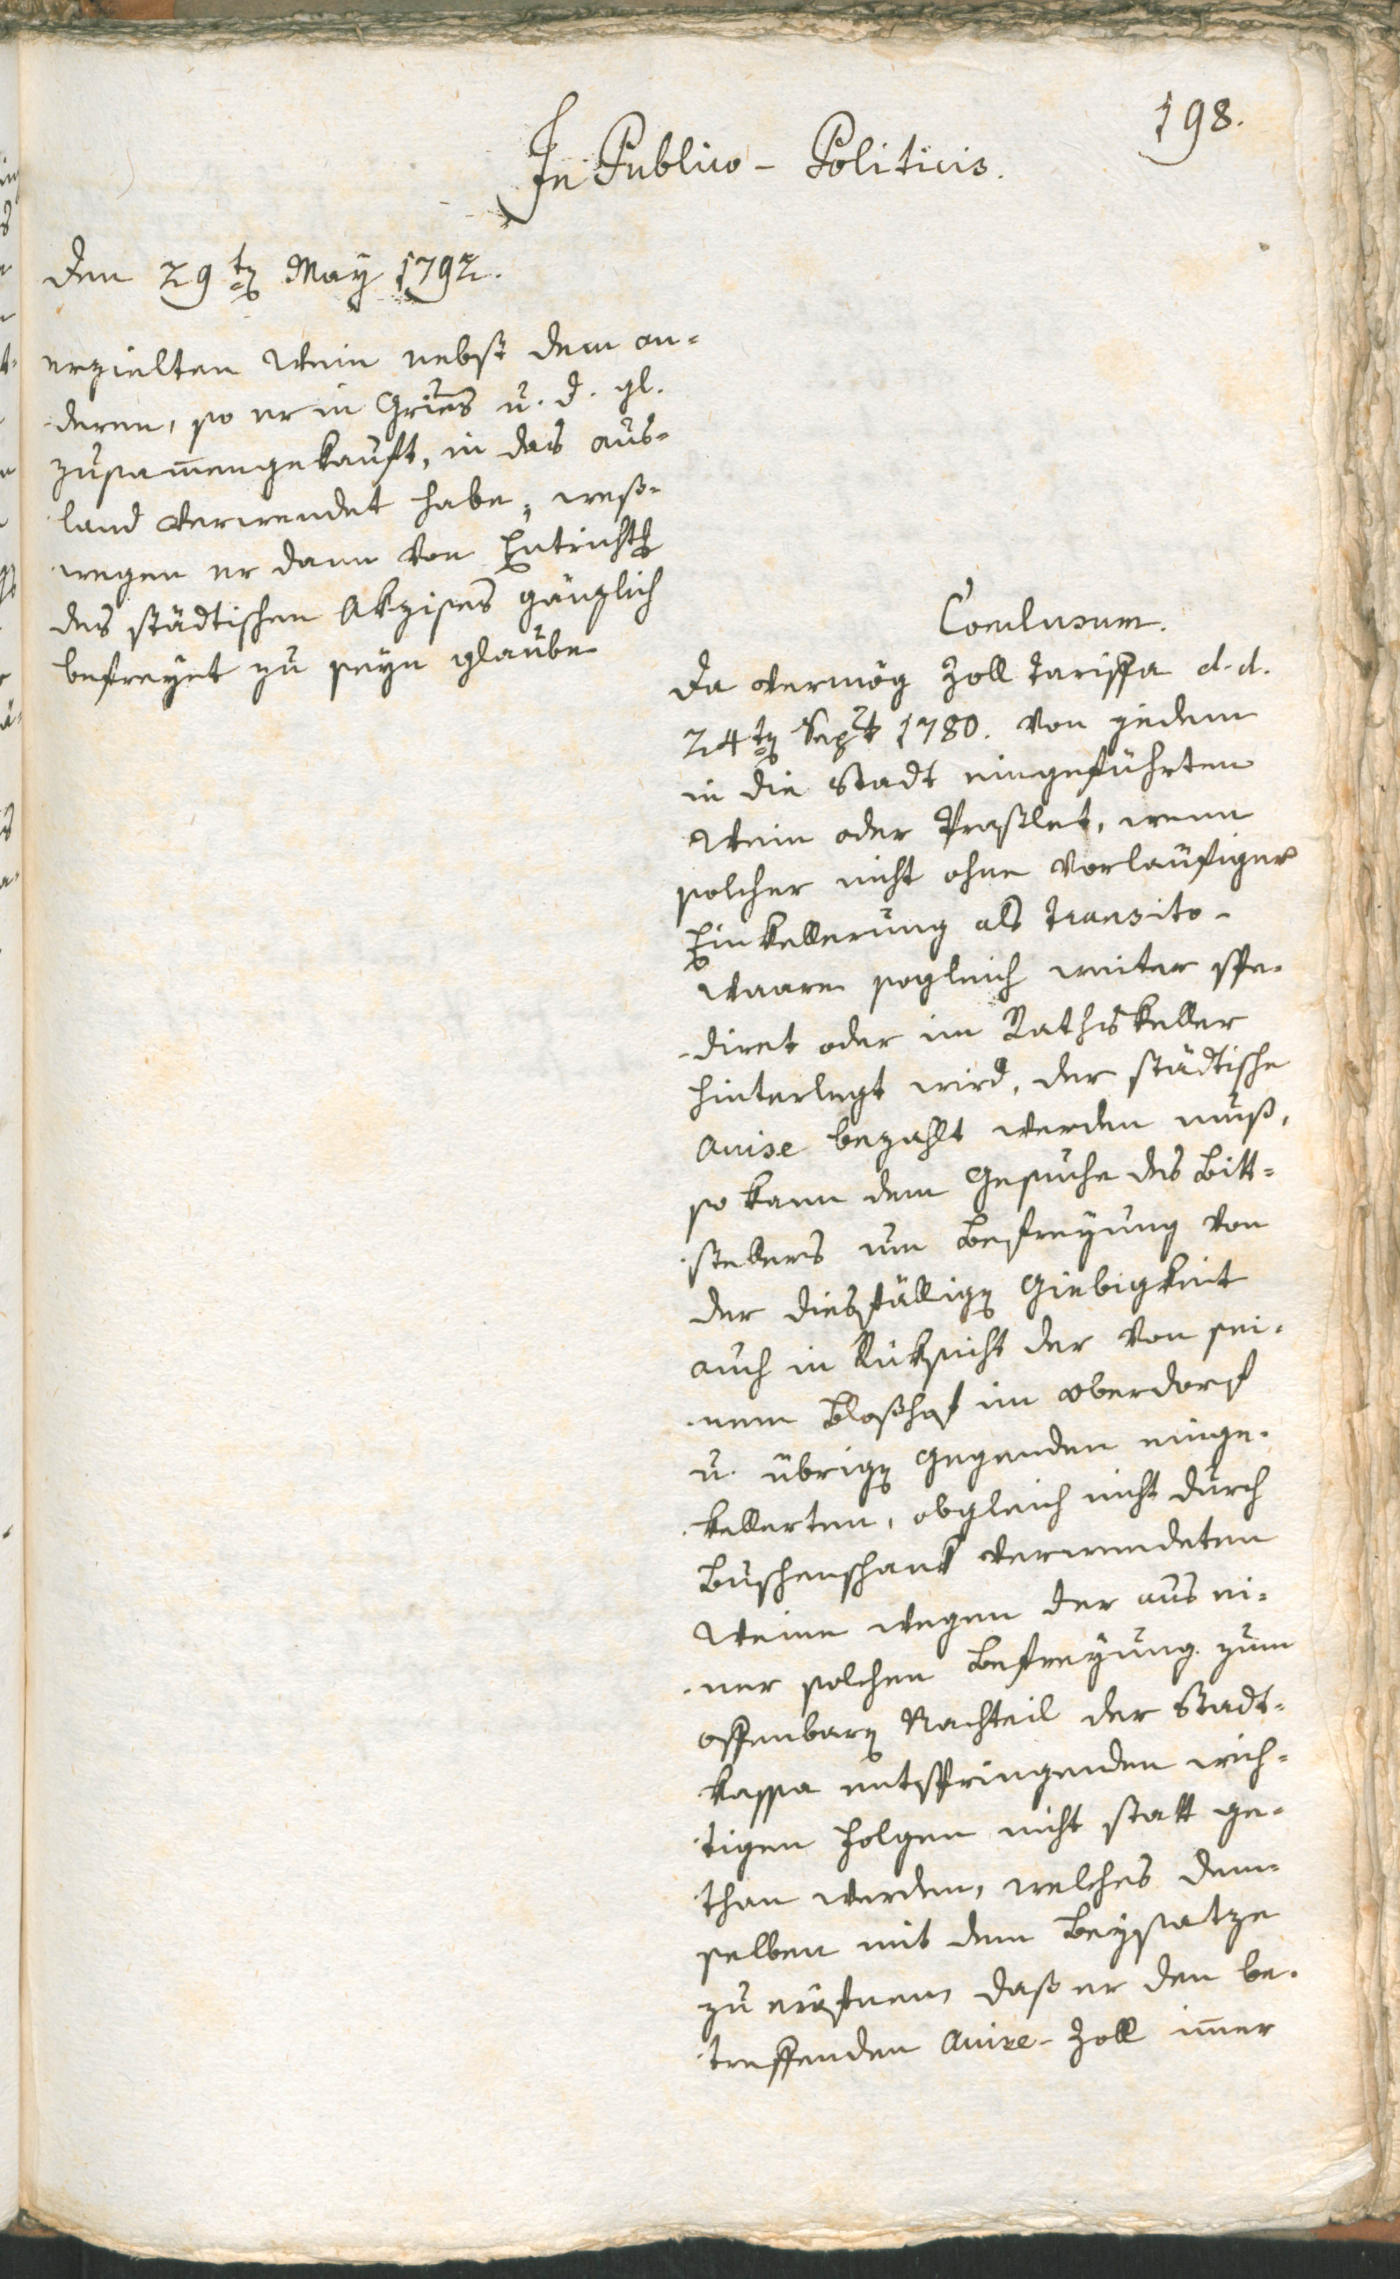 198.
In Publico-Politicis.
den 29tn May 1792.
erzielten Wein nebst dem an-
deren, so er in Gries u. d. gl.
zusam̅engekauft, in das aus-
land verwendet habe, weß-
wegen er dann von Entrichtg
des städtischen Akzises gänzlich
befreyet zu seyn glaube
Conclusum.
Da vermög Zoll Tariffa d. d.
24tn Sept 1780. von jedem
in die Stadt eingeführten
Wein oder Praßlet, wenn
solcher nicht ohne vorläufiger
Einkellerung als Transito-
waare sogleich weiter spe-
diret oder im Rathskeller
hinterlegt wird, der städtische
Accise bezahlt werden muß,
so kann dem Gesuche des Bitt-
stellers um Befreyung von
der diesfällign Giebigkeit
auch in Rüksicht der von sei-
nem Bloßhof im Oberdorf
u. übrign Gegenden einge-
kellerten, obgleich nicht durch
Buschenschank verwendeten
Weine wegen der aus ei-
ner solchen Befreyung zum
offenbarn Nachteil der Stadt-
kassa entspringenden wich-
tigen Folgen nicht statt ge-
than werden, welches dem-
selben mit dem Beysatze
zu eröfnen, daß er den be-
treffenden Accise-Zoll im̅er